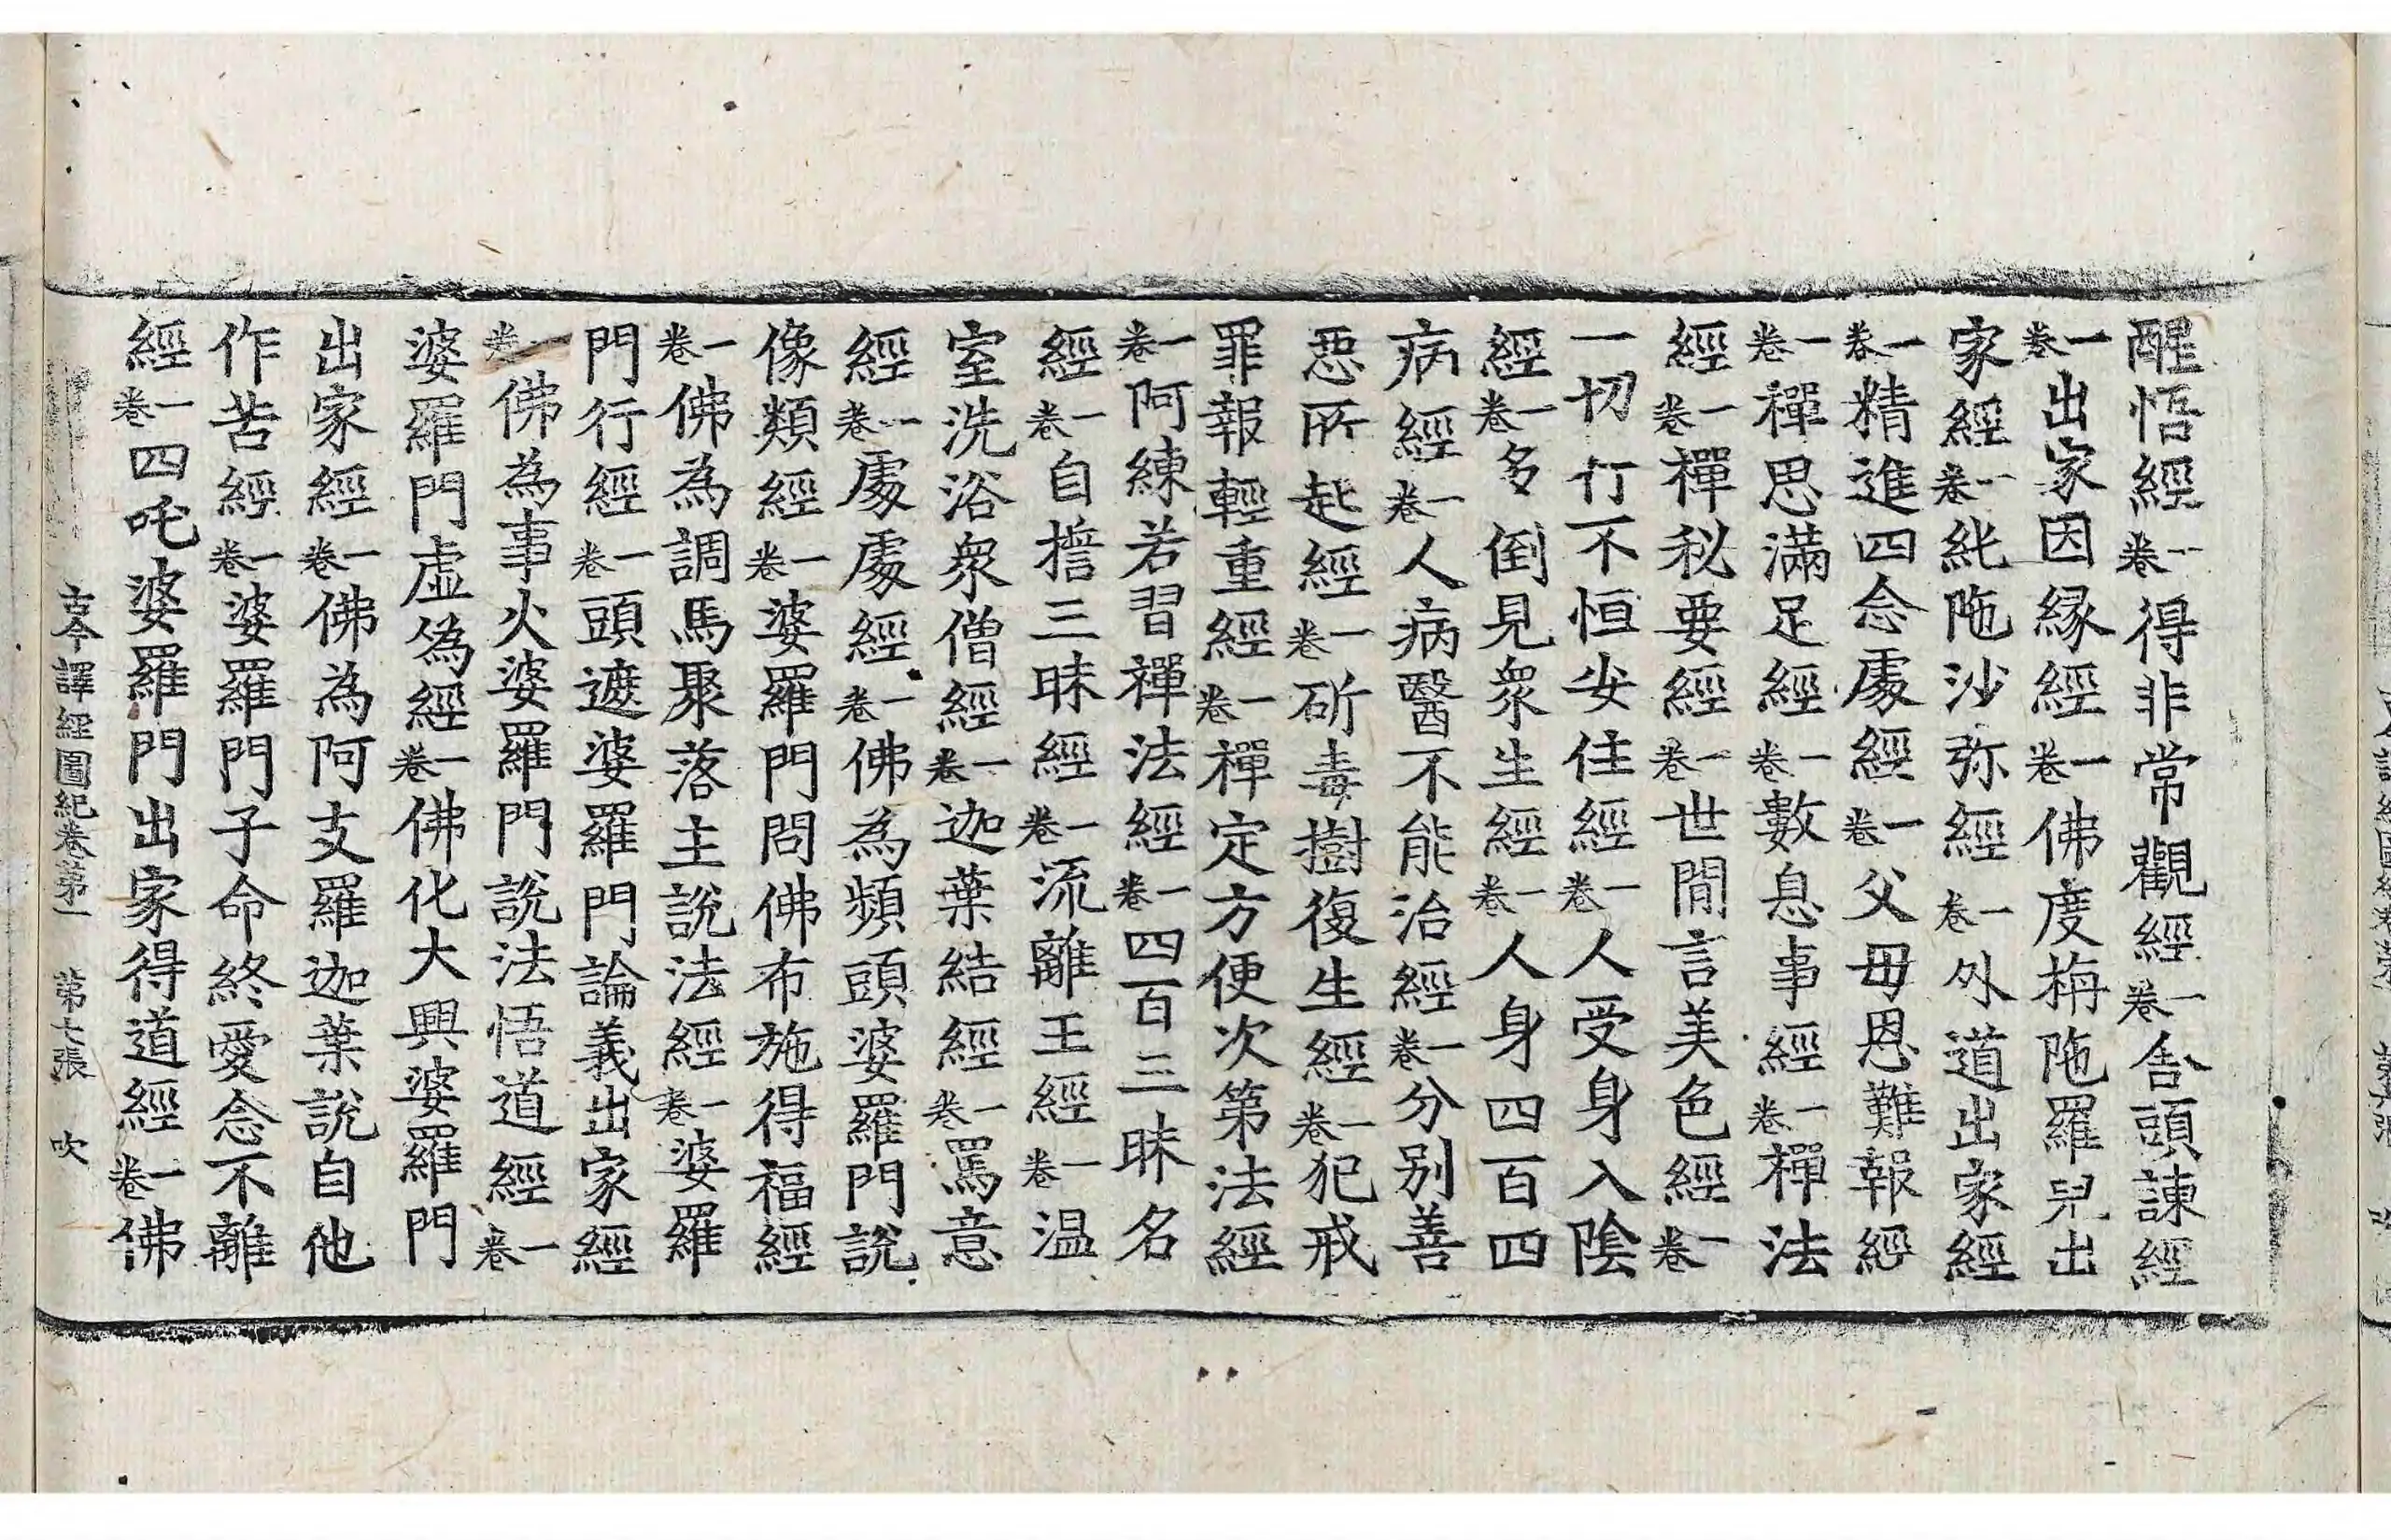 醒悟經一卷得非常觀經一卷舍頭諫經
一卷出家因緣經一卷佛度栴陁羅兒出
家經一卷純陁沙弥經一卷外道出家經
一卷精進四念處經一卷父毋恩難報經
一卷禪思滿足經一卷數息事經一卷禪法
經一卷禪秘要經一卷世閒言美色經一卷
一切行不恒安住經一卷人受身入陰
經一卷多倒見衆生經一卷人身四百四
病經一卷人病醫不能治經一卷分別善
惡所起經一卷斫毒樹復生經一卷犯戒
罪報輕重經一卷禪定方便次第法經
一卷阿練若習禪法經一卷四百三昧名
經一卷自誓三昧經一卷流離王經一卷温
室洗浴衆僧經一卷迦葉結經一卷罵意
經一卷處處經一卷佛為頻頭婆羅門說
像類經一卷婆羅門問佛布施得福經
一卷佛為調馬聚落主說法經一卷婆羅
門行經一卷頭遮婆羅門論義出家經
一卷佛為事火婆羅門說法悟道經一卷
婆羅門虛偽經一卷佛化大興婆羅門
出家經一卷佛為阿支羅迦葉說自他
作苦經一卷婆羅門子命終愛念不離
經一卷四吒婆羅門出家得道經一卷佛
古今譯經圖紀卷第一 第七張 吹